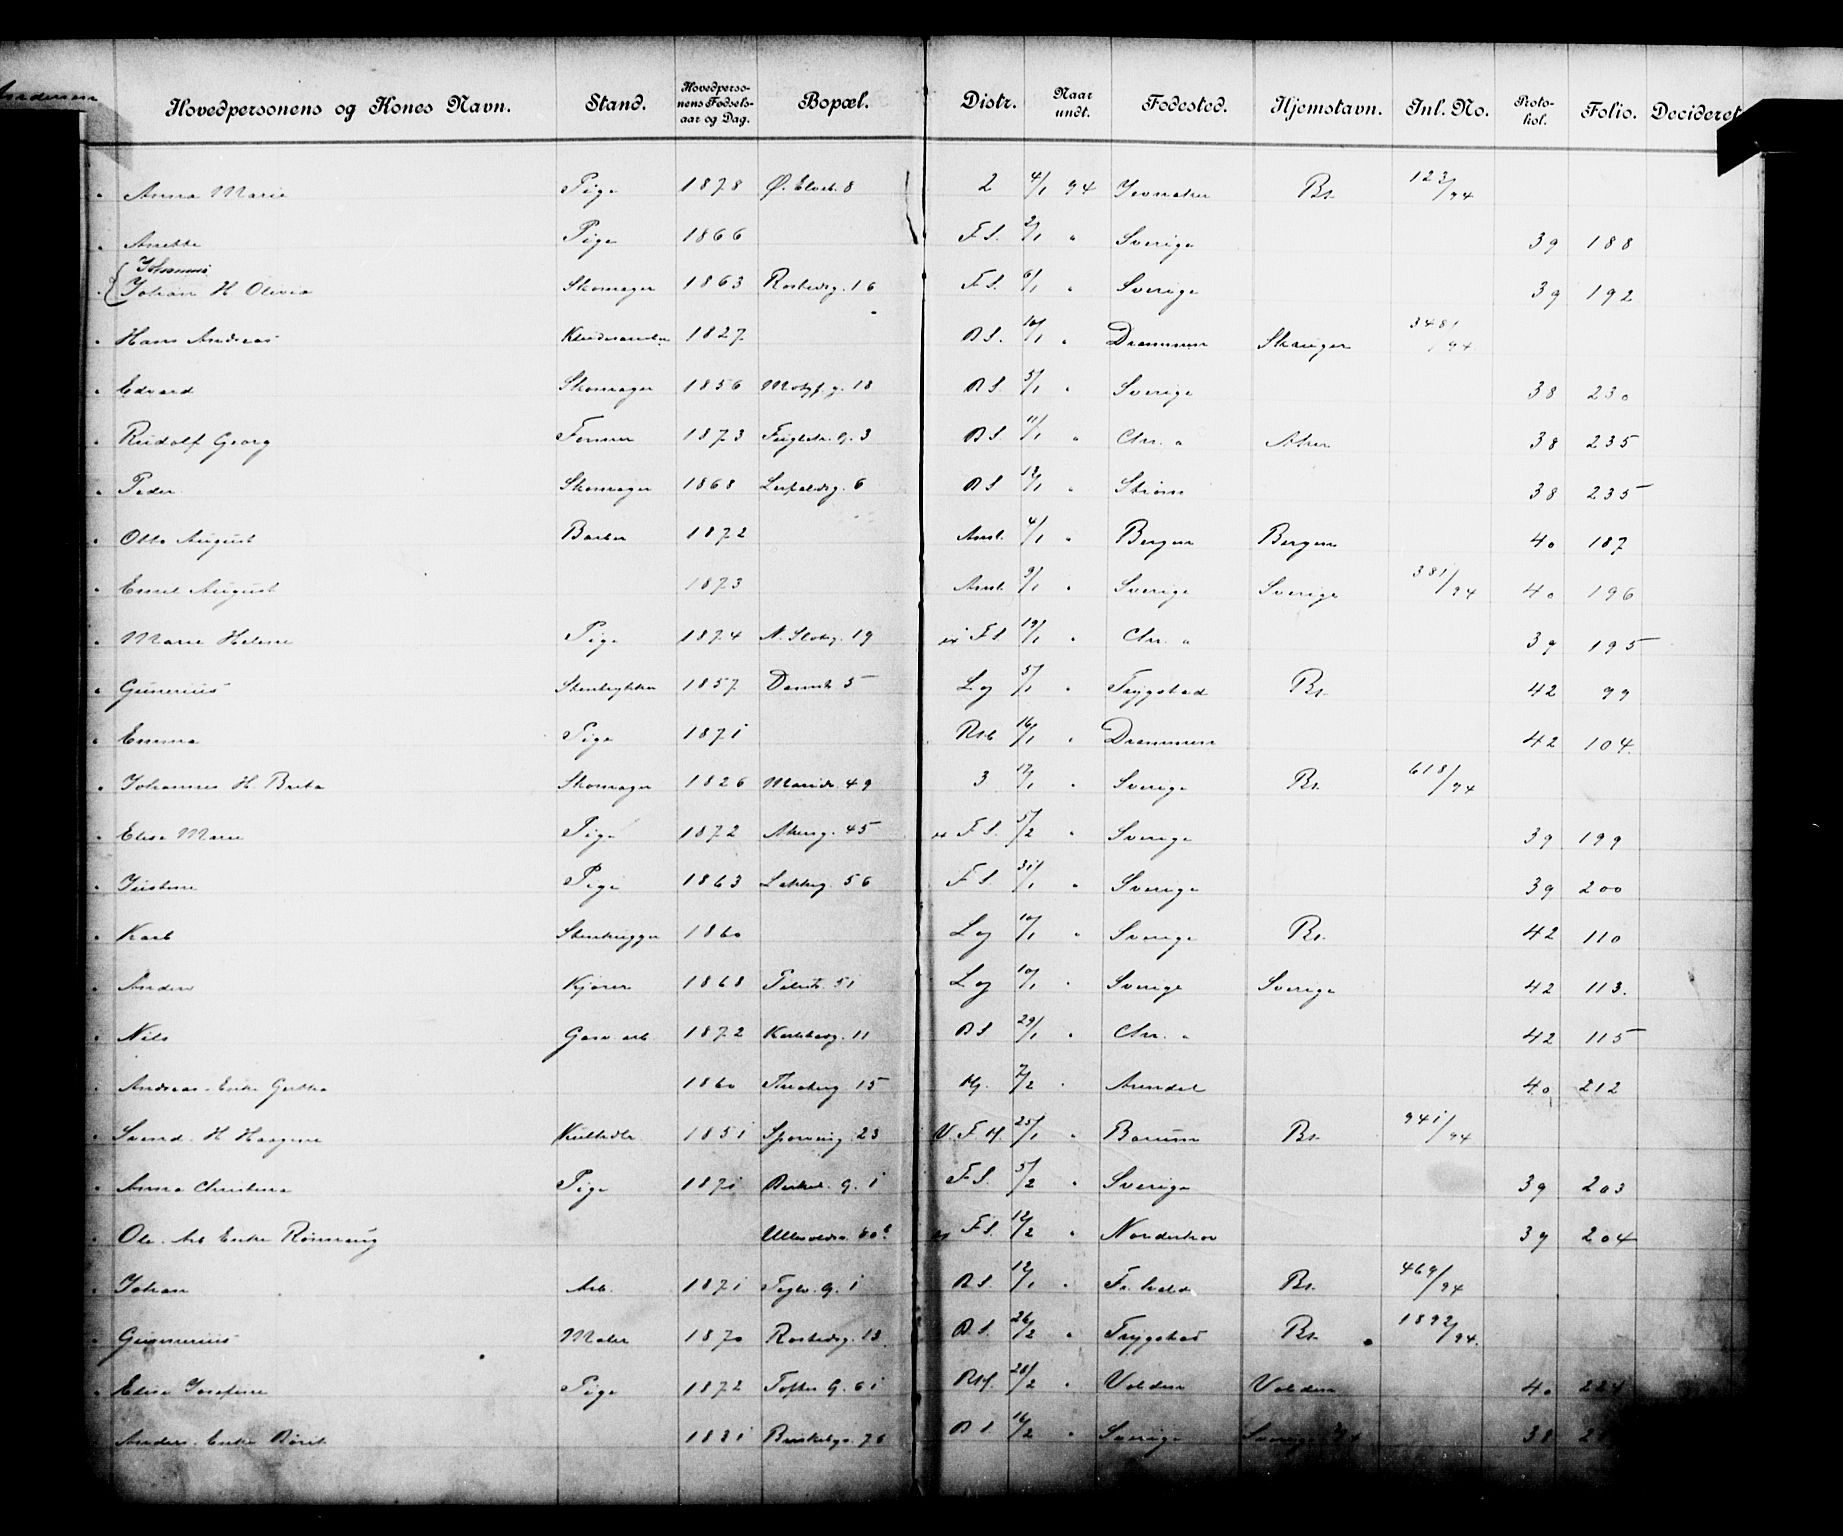 Andersen
Hovedpersonens og Kones Navn. Stand. Hovedperso-nens Fødsels-aar og Dag. Bopæl. Distr. Naar undt. Fødested. Hjemstavn. Inl. No. Proto-kol. Folio. Decideret
" Anna Marie Pige 1878 Ø. Elveb. 8 2 4/1 94 Jevnaker Bs. 123/94
" Anette Pige 1866 F.S. 2/1 " Sverige 39 188
Johannes
" Johan H Olivia Skomager 1863 Rostedsg. 16 F.S. 6/1 " Sverige 39 192
" Hans Andreas 1827 B.S. 10/1 " Drammen Skauger 348/94
" Edvard Skomager 1856 Motzf. g. 18 B.S 5/1 " Sverige 38 230
" Rudolf Georg Former 1873 G. 3 B.S. 11/1 " Chr. a Aker 38 235
" Peder Skomager 1868 Leirfaldsg. 6 B.S 12/1 " Strøm 38 235
" Otto August Barber 1872 Anst. 4/1 " Bergen Bergen 40 187
" Emil August 1873 Anst. 9/1 " Sverige Sverige 381/94 40 196
" Marie Helene Pige 1874 N. Slotsg. 19 F.S. 19/1 " Chr. a 39 195
" Gunerius Stenhugger 1857 5 Lg 5/1 " Trygstad Bs. 42 99
" Emma Pige 1871 Rst 16/1 " Drammen 42 104
" Johannes H. Brita Skomager 1826 Marids. 49 3 17/1 " Sverige Bs. 618/94
" Elise Marie Pige 1872 Akersg. 45 F.S. 5/2 " Sverige 39 199
" Justine Pige 1863 Lakkeg. 56 F.S. 31/1 " Sverige 39 200
" Karl Stenhugger 1860 Lg 10/1 " Sverige Bs. 42 110
" Anders Kjører 1868 51 Lg 10/1 " Sverige Sverige 42 113.
" Nils Garv. arb 1872 Karlsborg. 11 B.S 29/1 " Chr. a 42 115
" Andreas. Enke Gertha 1860 Thorbergg 15 7/2 " Arendal 40 212
" Svend. H Haagine 1851 Sporveisg. 23 V.F.H. 25/1 " Bærum Bs. 941/94
" Anna Christina Pige 1871 G. 1 F.S. 5/2 " Sverige 39 203
" Ole. Arb Enke Rønnaug Ullevoldsv. 80 F.S. 12/2 " Norderhov 39 204
" Johan Arb. 1871 Teglv. G. 1 B.S. 12/1 " Fr. hald Bs. 469/94
" Gunnerius Maler 1870 Rostedsg. 13 B.S. 26/2 " Trygstad Bs. 1892/94.
" Elise Josefine Pige 1872 Toftes G. 61 28/2 " Volden Volden 40 224
" Anders. Enke Børit 1831 76 B.S 16/2 " Sverige Sverige 38